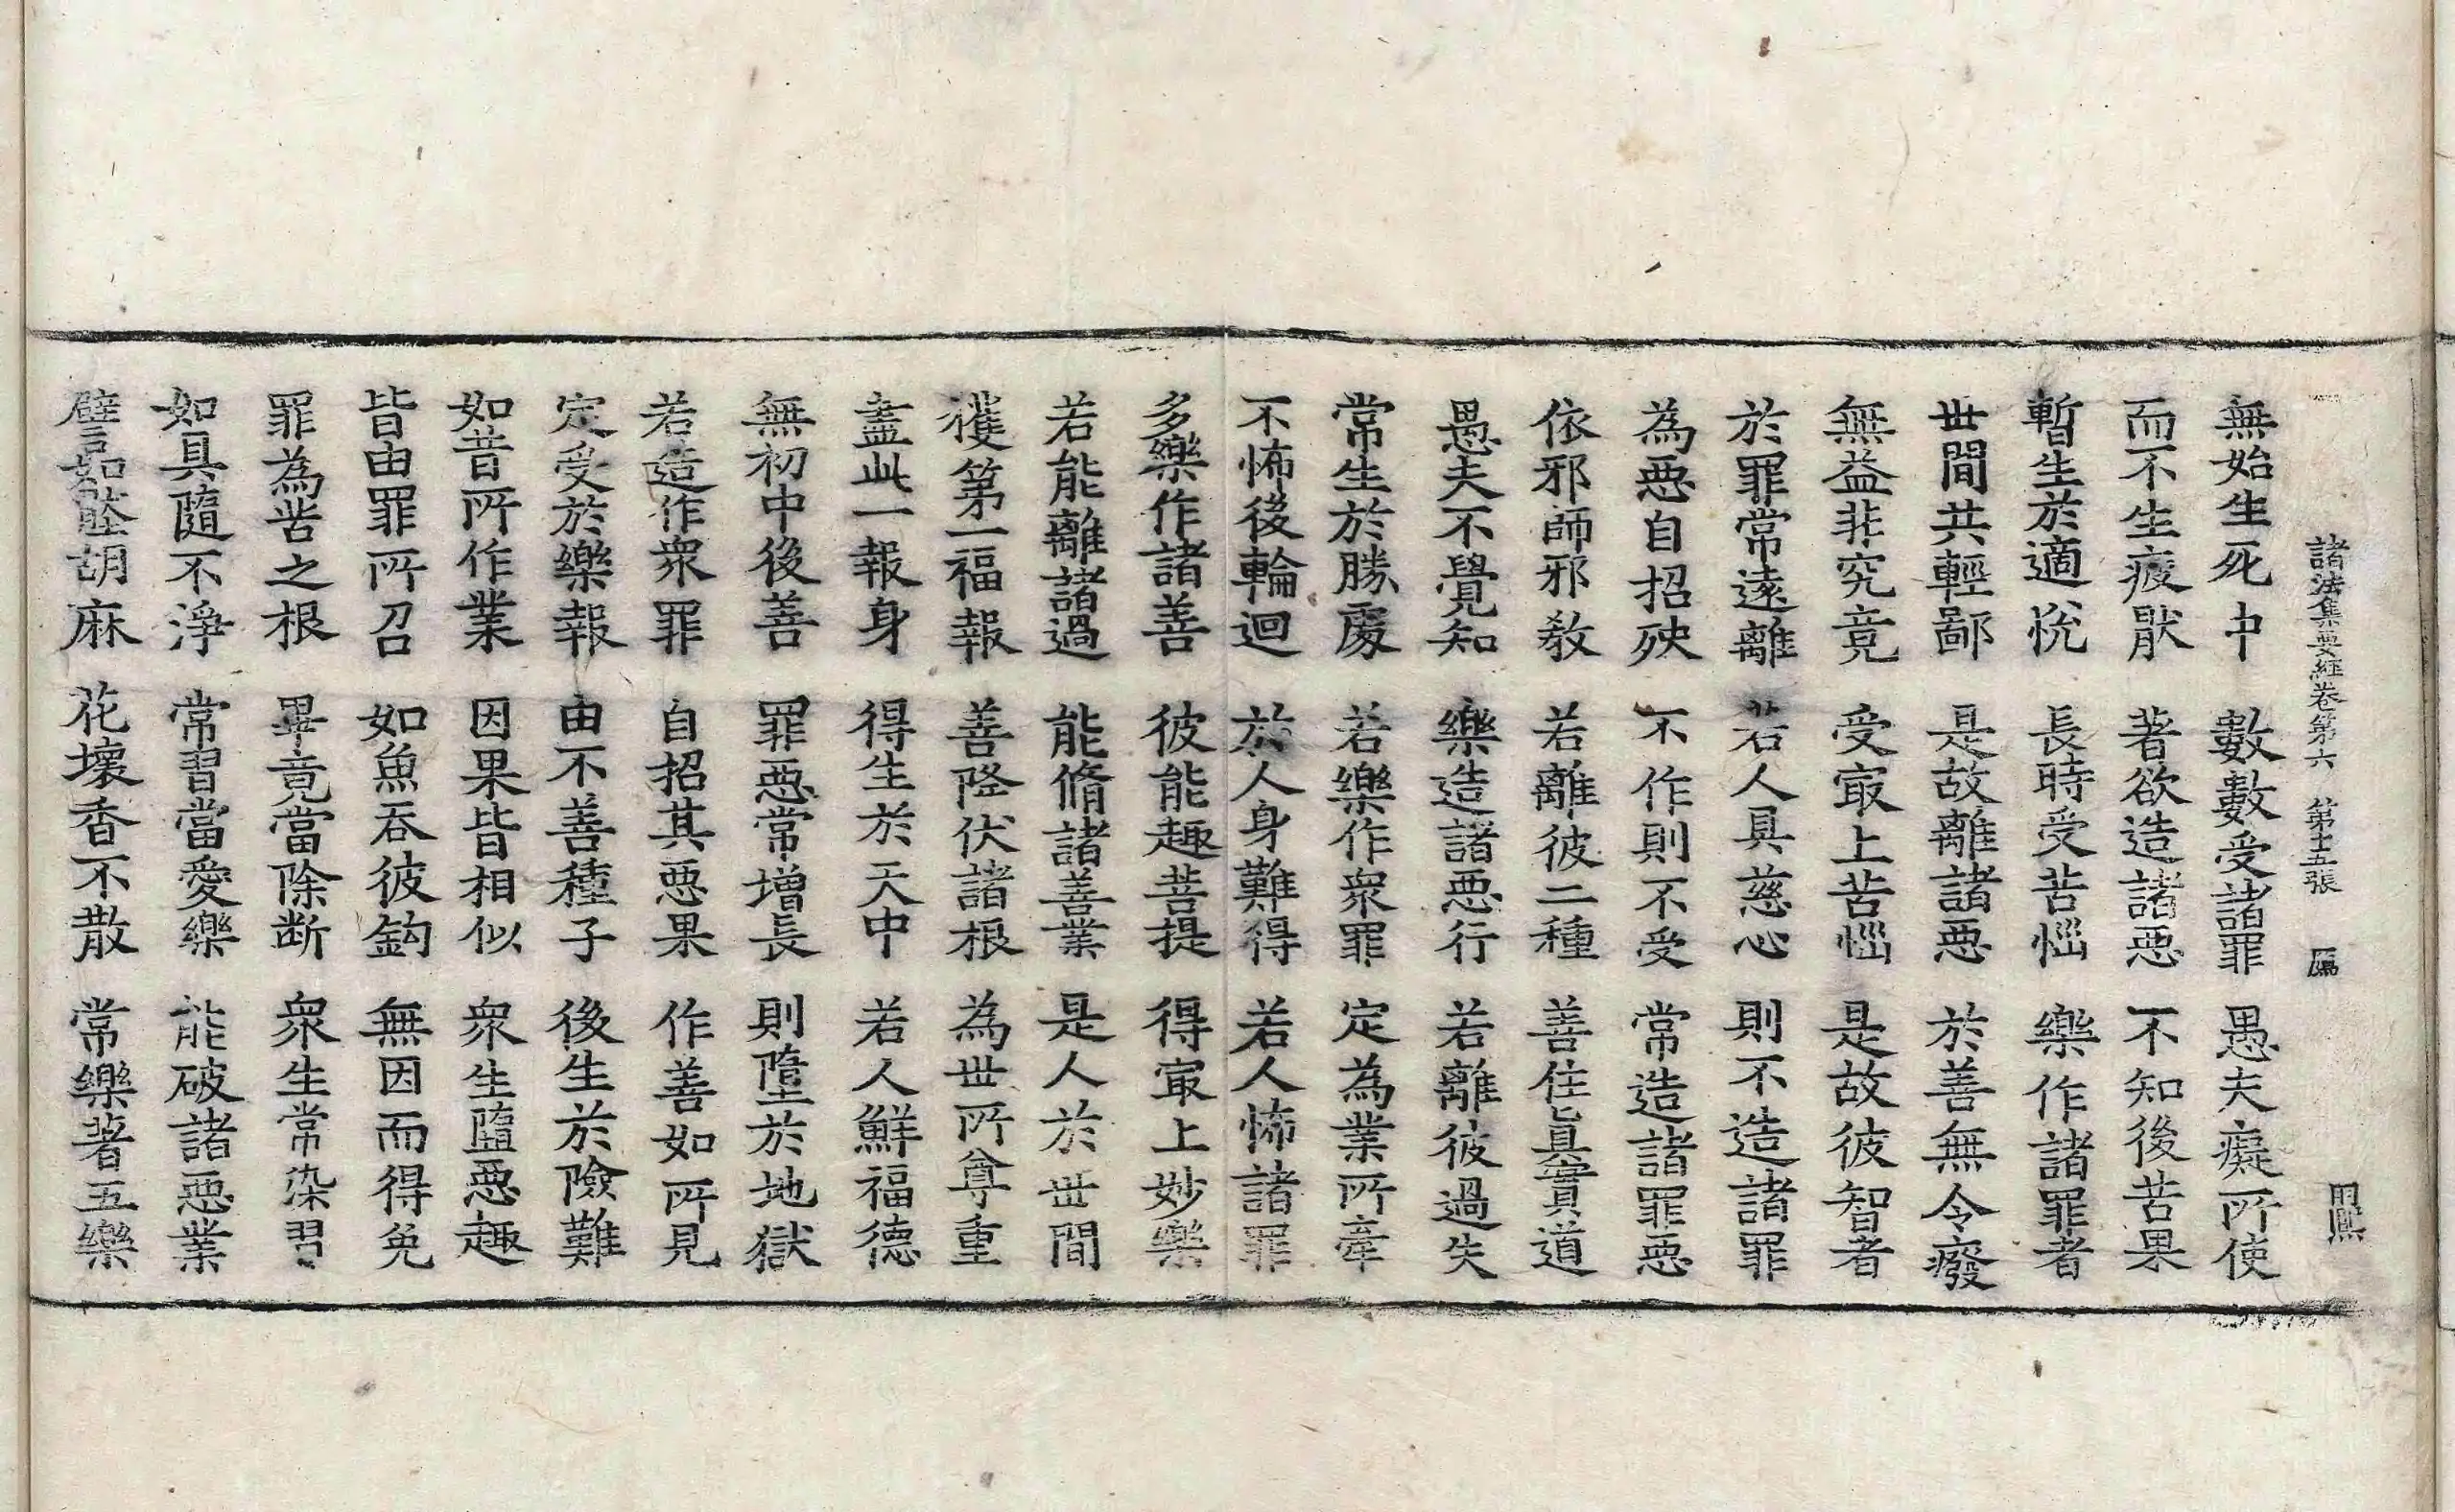 諸法集要經卷第六　第十五張
無始生死中　數數受諸罪　愚夫癡所使
而不生疲猒　著欲造諸惡　不知後苦果
暫生於適恱　長時受苦惱　樂作諸罪者
世間共輕鄙　是故離諸惡　於善無令癈
無益非究竟　受㝡上苦惱　是故彼智者
於罪常遠離　若人具慈心　則不造諸罪
為惡自招殃　不作則不受　常造諸罪惡
依邪師邪教　若離彼二種　善住眞實道
愚夫不覺知　樂造諸惡行　若離彼過失
常生於勝處　若樂作衆罪　定為業所牽
不怖後輪迴　於人身難得　若人怖諸罪
多樂作諸善　彼能趣菩提　得㝡上妙樂
若能離諸過　能脩諸善業　是人於世間
獲第一福報　善降伏諸根　為世所尊重
盡此一報身　得生於天中　若人鮮福德
無初中後善　罪惡常增長　則墮於地獄
若造作衆罪　自招其惡果　作善如所見
定受於樂報　由不善種子　後生於險難
如昔所作業　因果皆相似　衆生墮惡趣
皆由罪所召　如魚吞彼鈎　無因而得免
罪為苦之根　畢竟當除断　衆生常染習
如具隨不淨　常習當愛樂　能破諸惡業
譬如𦜉胡麻　花壞香不散　常樂著五樂